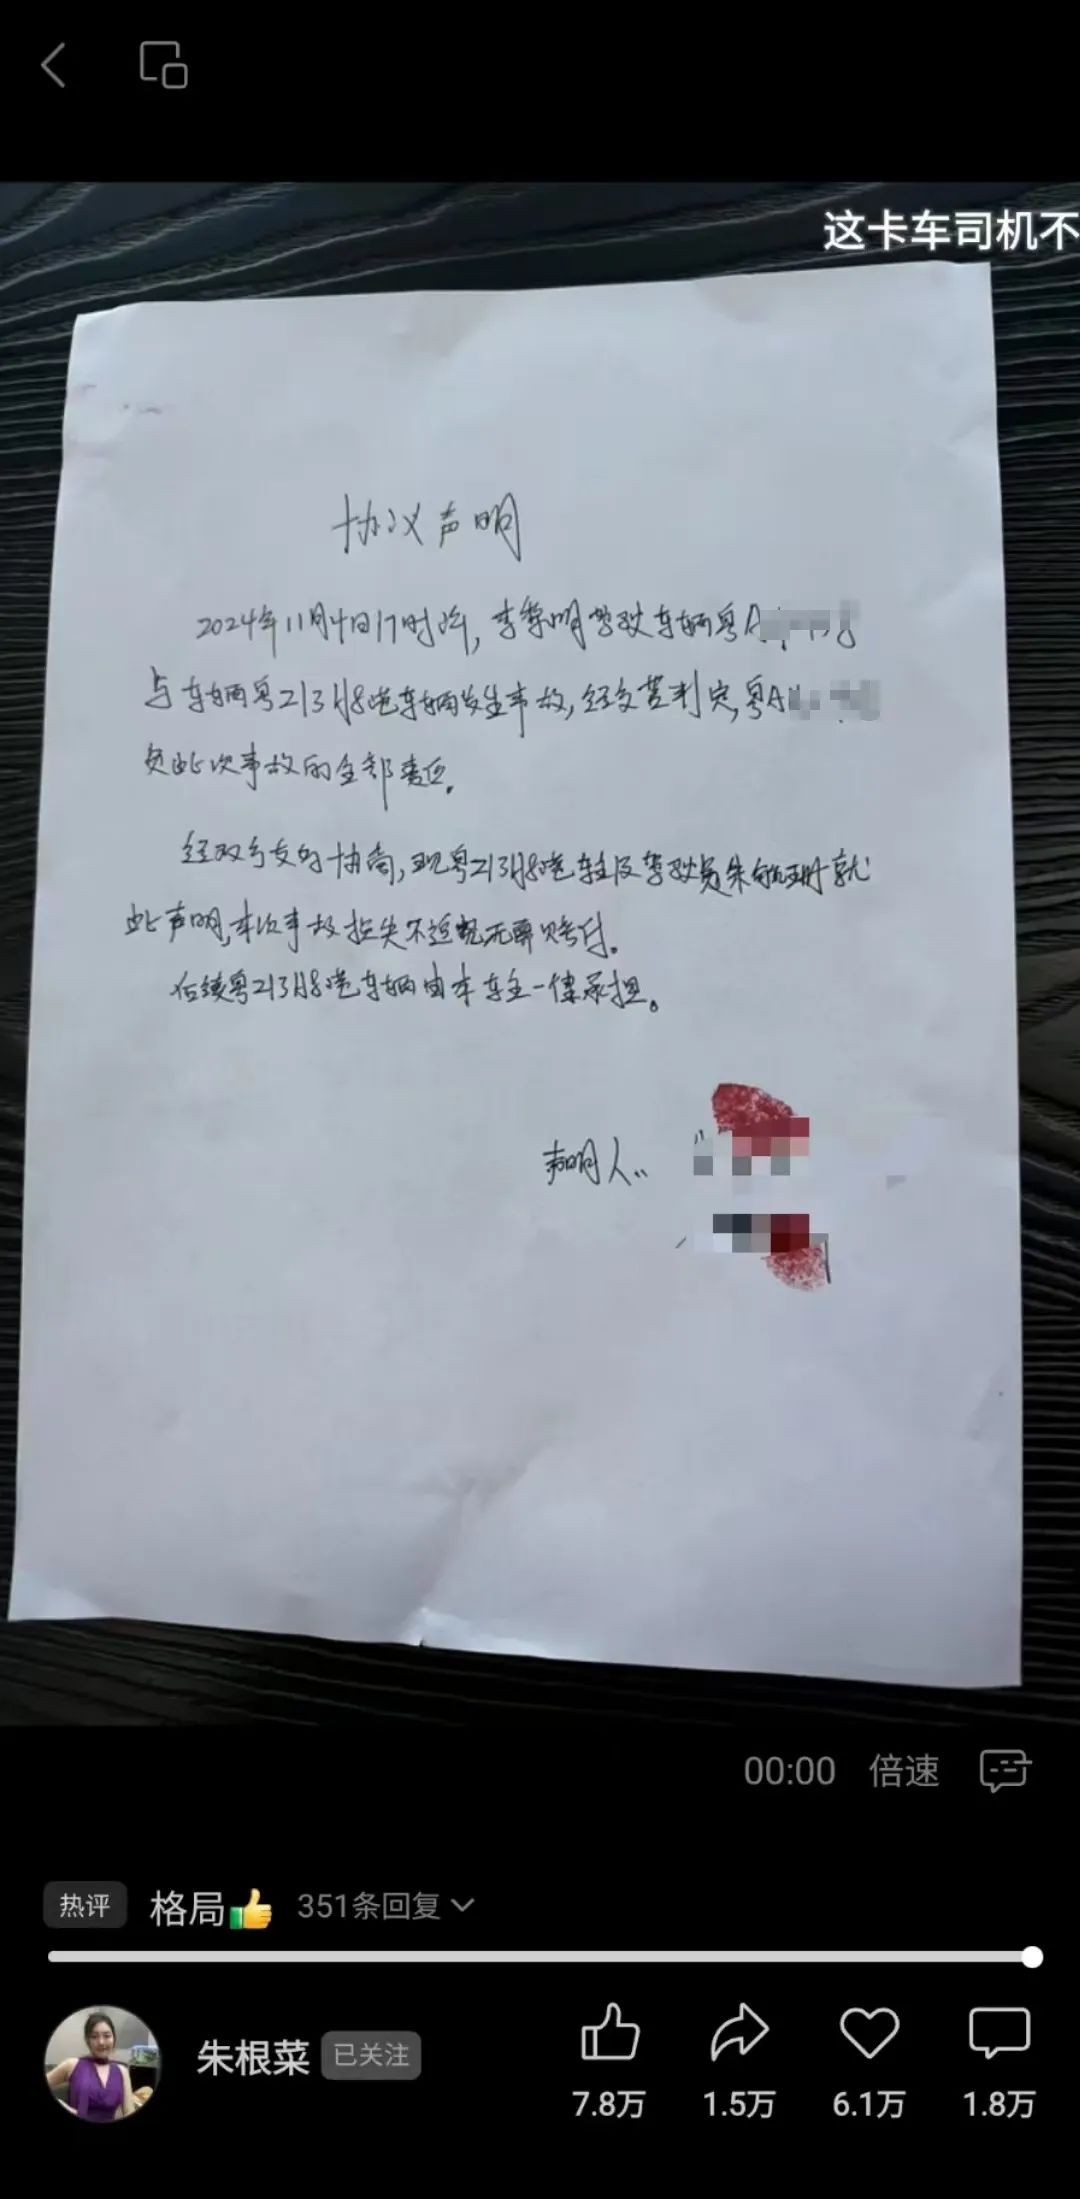 这卡车司机不
协议声明
2024年11月4日17时许,李黎明驾驶车辆粤A
与车辆粤Z13H8港车辆发生事故,经交警判定,粤A
负此次事故的全部责任。
经双方友好协商,现粤Z13H8港车主及驾驶员朱 就
此声明,本次事故损失不追究无需赔付。
后续粤Z13H8港车辆由本车主一律承担。
声明人:
00:00 倍速
热评 格局👍 351条回复
朱根菜 已关注
7.8万 1.5万 6.1万 1.8万